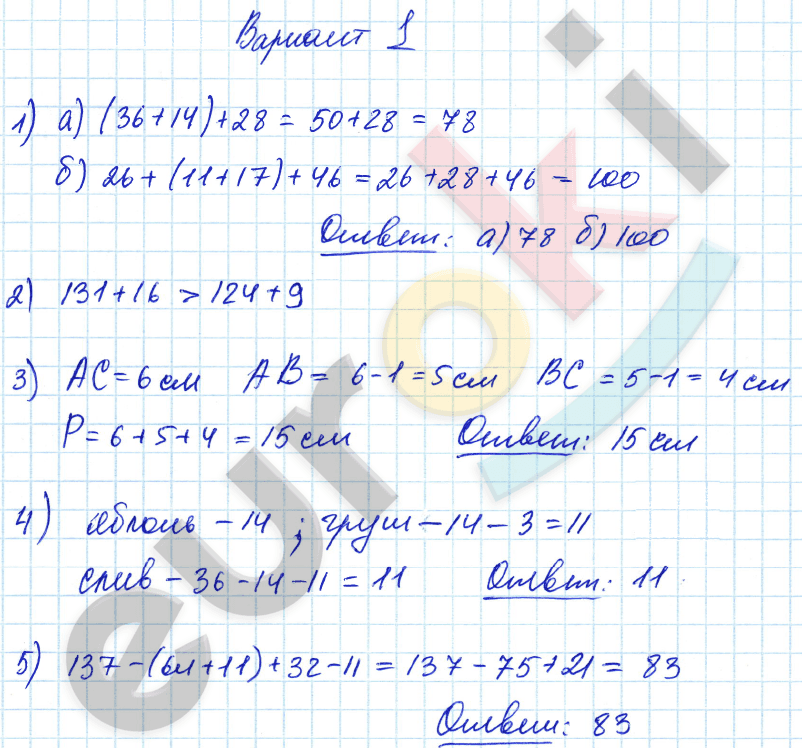 Вариант 1
1) а) (36+14)+28 = 50+28 = 78
б) 26+(11+17)+46 = 26+28+46 = 100
Ответ: а) 78 б) 100
2) 131+16 > 124+9
3) AC = 6 см AB = 6-1 = 5 см BC = 5-1 = 4 см
P = 6+5+4 = 15 см Ответ: 15 см
4) яблонь - 14 ; груш - 14 - 3 = 11
слив - 36 - 14 - 11 = 11 Ответ: 11
5) 137-(64+11)+32-11 = 137-75+21 = 83
Ответ: 83
euroki